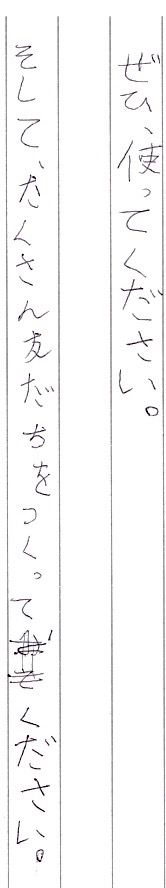 ぜひ、使ってください。
そして、たくさん友だちをつくってください。